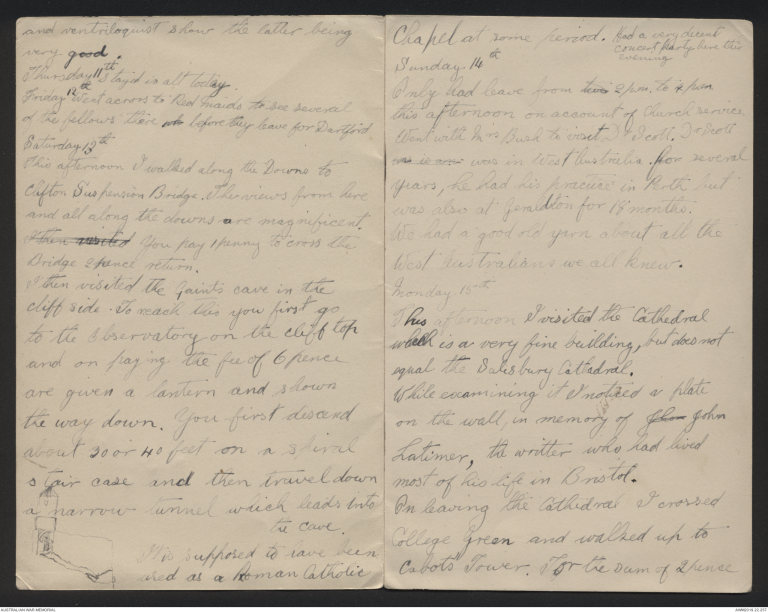 and ventriloquist show the latter being
very good.
Thursday 11th Stayed in all today.
Friday 12th Went across to Red Maids to see several
of the fellows there before they leave for Dartford
Saturday 13th
This afternoon I walked along the Downs to
Clifton Suspension Bridge. The views from here
and all along the downs are magnificent.
I then visited You pay 1 penny to cross the
Bridge 2 pence return.
I then visited the Saints cave in the
cliff side. To reach this you first go
to the Observatory on the cliff top
and on paying the fee of 6 pence
are given a lantern and shown
the way down. You first descend
about 30 or 40 feet on a spiral
stair case and then travel down
a narrow tunnel which leads into
the cave.
It is supposed to have been
used as a Roman Catholic
Chapel at some period. Had a very decent
concert party here this
evening
Sunday 14th
Only had leave from 2 p.m. to 4 p.m
this afternoon on account of Church service.
Went with Mrs Bush to visit Dr Scott. Dr Scott
was in West Australia for several
years, he had his practice in Perth but
was also at Geraldton for 18 months.
We had a good old yarn about all the
West Australians we all knew.
Monday 15th
This afternoon I visited the Cathedral
which is a very fine building, but does not
equal the Salisbury Cathedral.
While examining it I noticed a plate
on the wall, in memory of John
Latimer, the writter who had lived
most of his life in Bristol.
On leaving the Cathedral I crossed
College Green and walked up to
Cabots Tower. For the sum of 2 pence
AUSTRALIAN WAR MEMORIAL